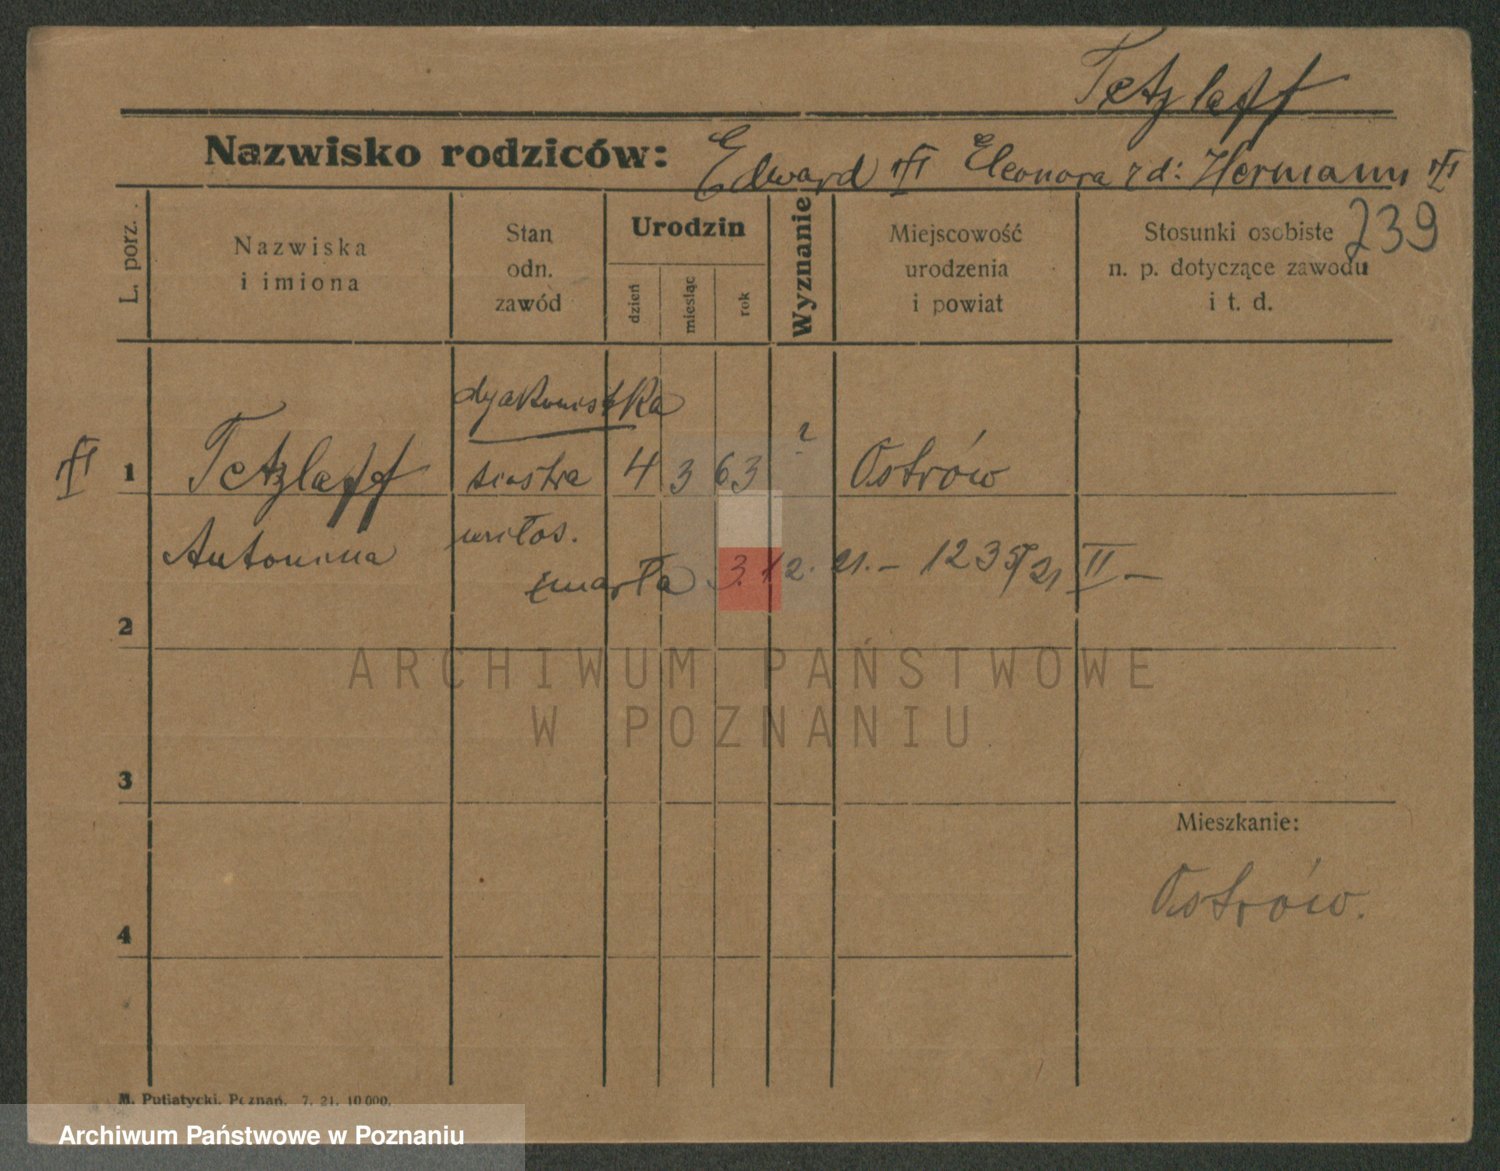 Tetzlaff
Nazwisko rodziców: Edward Eleonora zd: Hermann
239
L. porz.
Nazwiska
i imiona
Stan
odn.
zawód
Urodzin
dzień
miesiąc
rok
Wyznanie
Miejscowość
urodzenia
i powiat
Stosunki osobiste
n. p. dotyczące zawodu
i t. d.
dyakonistka
1 Tetzlaff siostra 4 3 63 ? Ostrów
Antonina miłos.
zmarła 3. 12. 21. – 1235/21 II –
2
ARCHIWUM PAŃSTWOWE
W POZNANIU
3
Mieszkanie:
Ostrów.
4
M. Putiatycki. Poznań. 7. 21. 10 000.
Archiwum Państwowe w Poznaniu